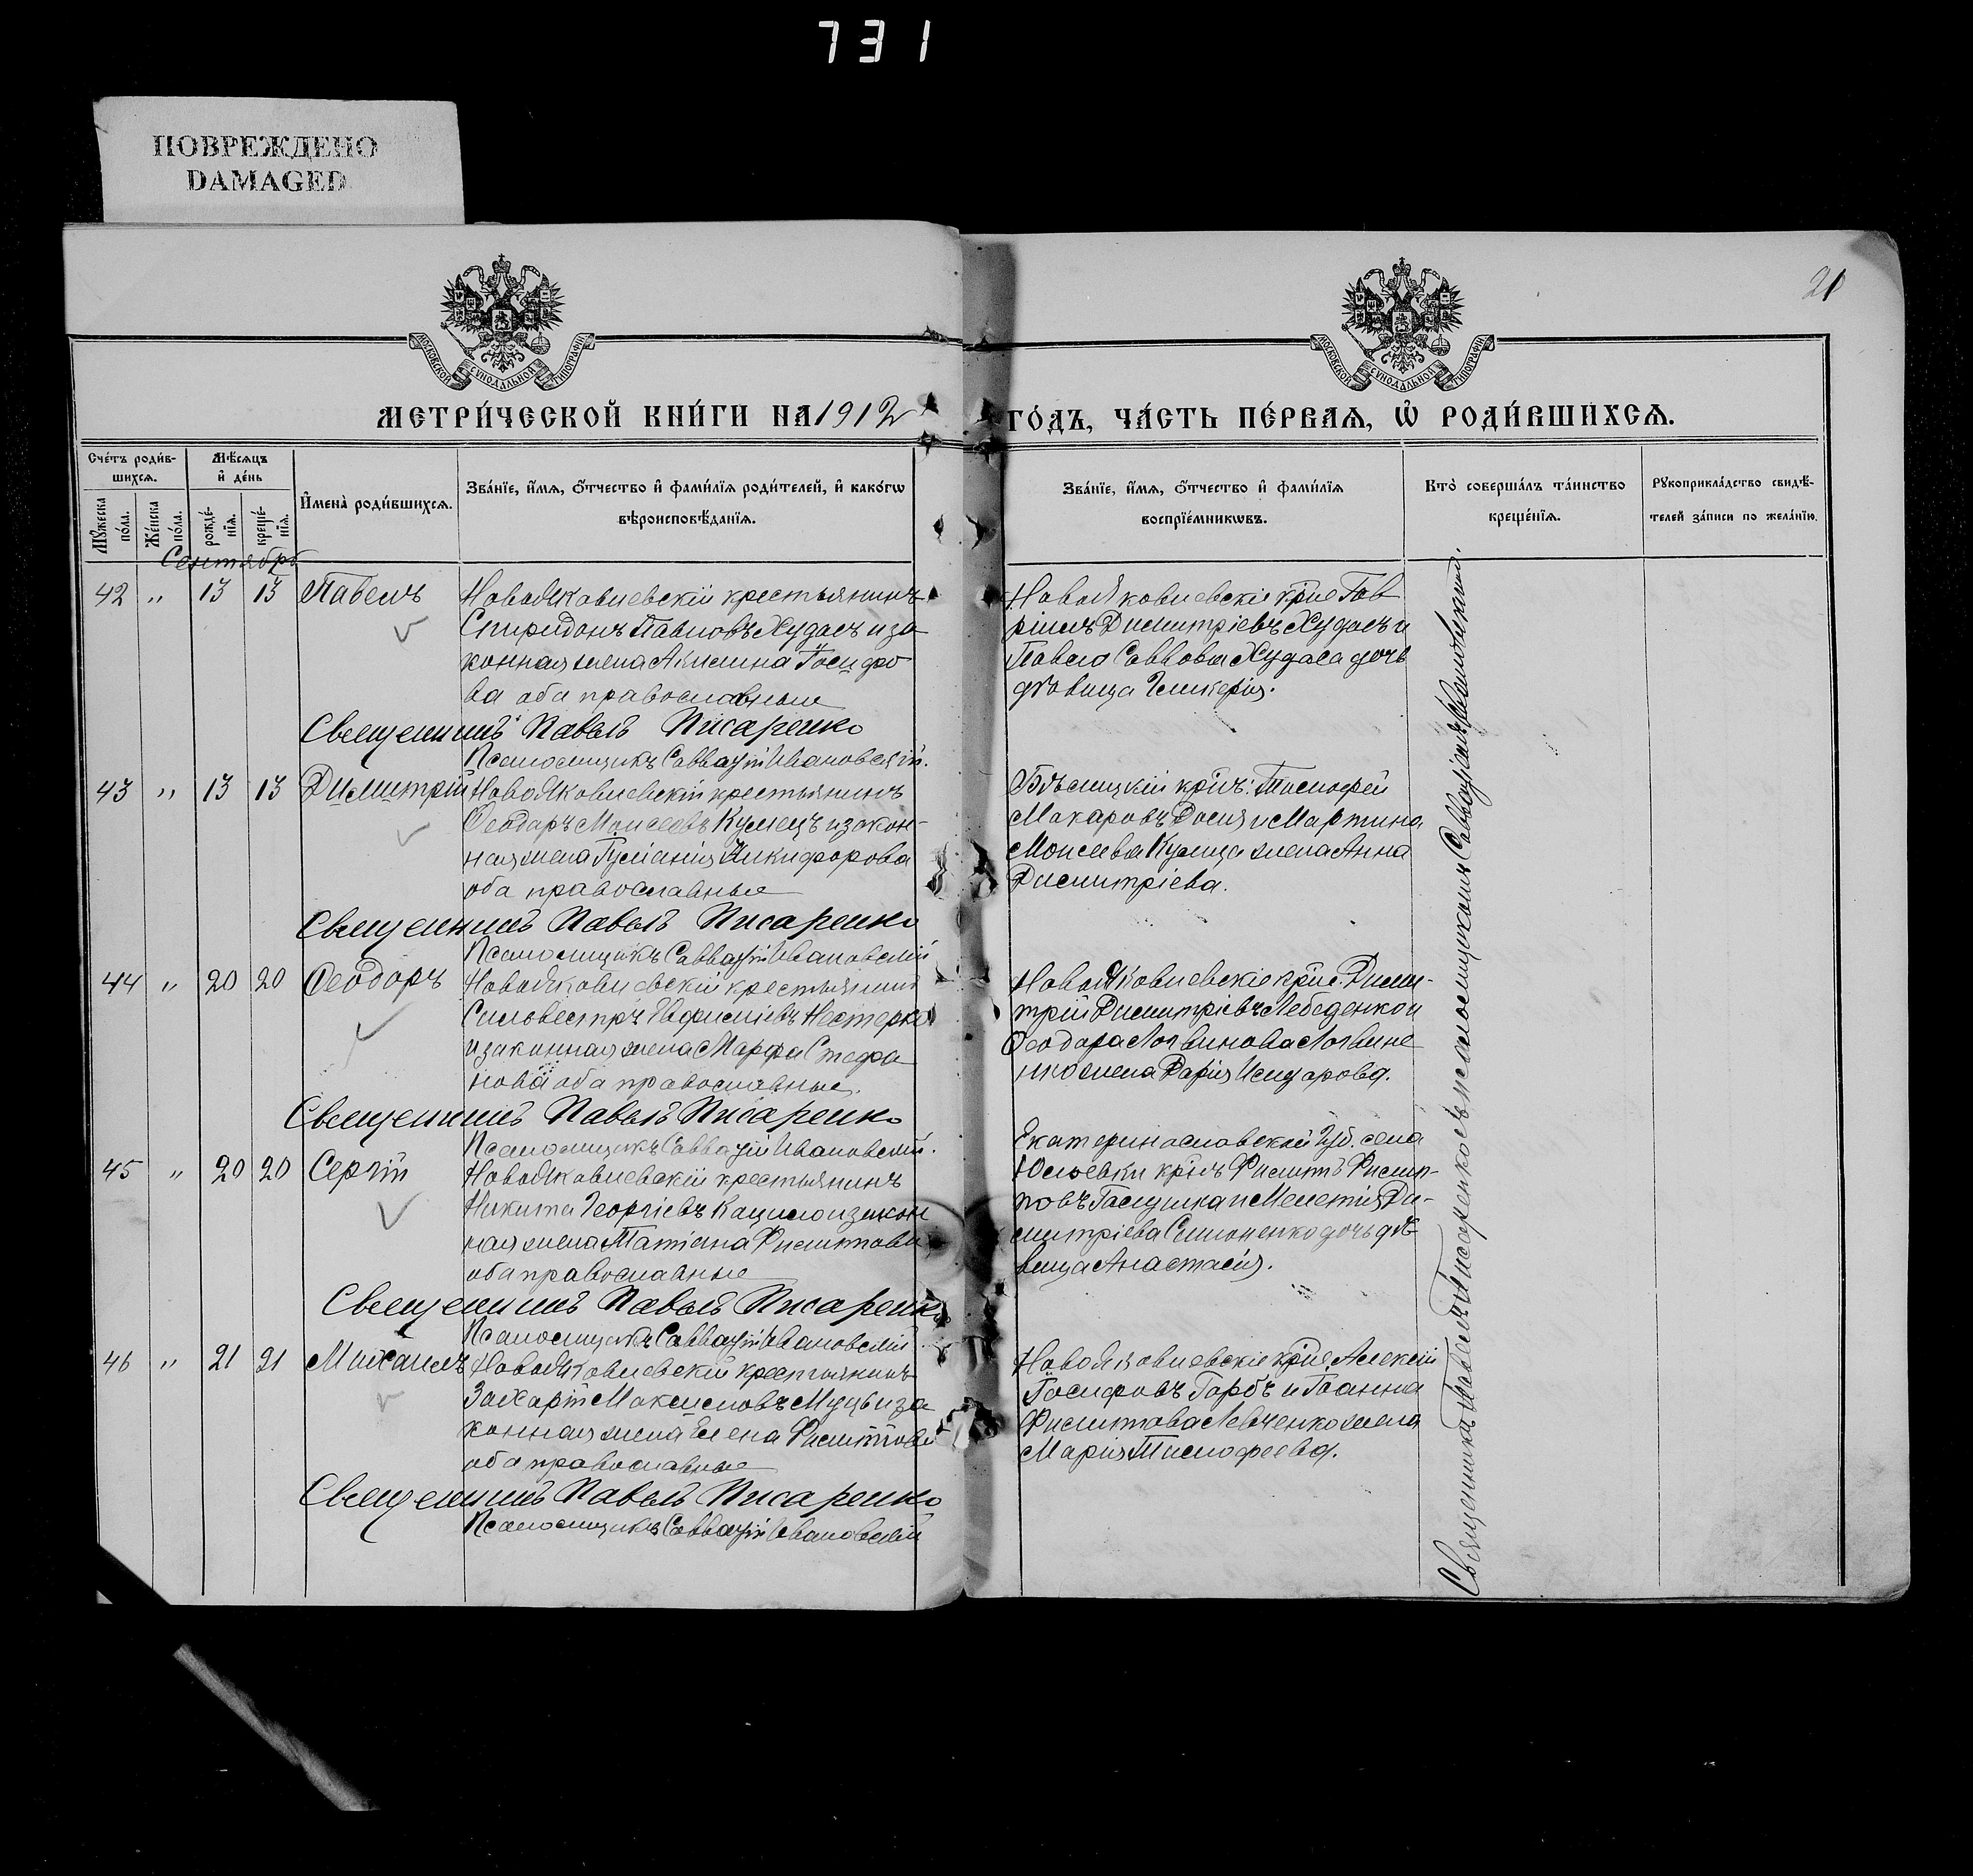 731
ПОВРЕЖДЕНО
DAMAGED
21
МОСКОВСКОЙ СѴНОДАЛЬНОЙ ТИПОГРАФІИ
МОСКОВСКОЙ СѴНОДАЛЬНОЙ ТИПОГРАФІИ
МЕТРИ́ЧЕСКОЙ КНИ́ГИ НА 1912 ГО́ДЪ, ЧА́СТЬ ПЕ́РВАЯ, Ѡ РОДИ́ВШИХСЯ.
Сче́тъ роди́вшихся.
Мѣ́сяцъ и де́нь
Му́жеска по́ла.
Же́нска по́ла.
рожде́нія.
креще́нія.
Имена̀ роди́вшихся.
Зва́ніе, и́мя, о́тчество и фами́лія роди́телей, и како́гѡ
вѣроисповѣ́данія.
Зва́ніе, и́мя, о́тчество и фами́лія
воспріе́мникѡвъ.
Кто̀ соверша́лъ та́инство
креще́нія.
Рукоприкла́дство свидѣ́-
телей за́писи по жела́нію.
Сентябрь
42 " 13 13 Павелъ Новояковлевскій крестьянинъ
Спиридонъ Павловъ Худасъ и за
конная жена Акилина Іосифо
ва оба православные
Священникъ Павелъ Писаренко
Псаломщикъ Савватій Ивановскій.
Новояковлевскіе кр-не Гав
ріилъ Димитріевъ Худасъ и
Павла Саввова Худаса дочь
дѣвица Гликерія.
43 " 13 13 Димитрій Новояковлевскій крестьянинъ
Ѳеодоръ Моисеевъ Кумецъ и закон-
ная жена Іуліанія Никифорова
оба православные
Священникъ Павелъ Писаренко
Псаломщикъ Савватій Ивановскій
кр-нъ: Тимофей
Макаровъ и Мартина
Моисеева Кумеца жена Анна
Димитріева.
44 " 20 20 Ѳеодоръ Новояковлевскій крестьянинъ
Силовестръ Нестерко
и законная жена Марфа Стефа
нова оба православные.
Священникъ Павелъ Писаренко
Псаломщикъ Савватій Ивановскій.
Новояковлевскіе кр-не. Дими-
трій Димитріевъ Лебеденко и
Ѳеодора Логвинова Логвине
нко жена Дарія Исидорова.
45 " 20 20 Сергій Новояковлевскій крестьянинъ
Никита Георгіевъ Кацило и закон
ная жена Татіана Филиппова
оба православные
Священникъ Павелъ Писаренко
Псаломщикъ Савватій Ивановскій
Екатеринославской губ. села
Юльевки кр-нъ Филиппъ Филип-
повъ Галушка и Мелетія Ди-
митріева Симоненко дочь дѣ
вица Анастасія.
46 " 21 21 Михаилъ Новояковлевскій крестьянинъ
Захарій Максимовъ Муць и за
конная жена Елена Филиппова
оба православные
Священникъ Павелъ Писаренко
Псаломщикъ Савватій Ивановскій
Новояковлевскіе кр-не. Алексій
Іосифовъ Горбъ и Іоанна
Филиппова Левченко жена
Марія Тимофеева.
Священникъ Павелъ Писаренко съ псаломщикомъ Савватіемъ Ивановскимъ.